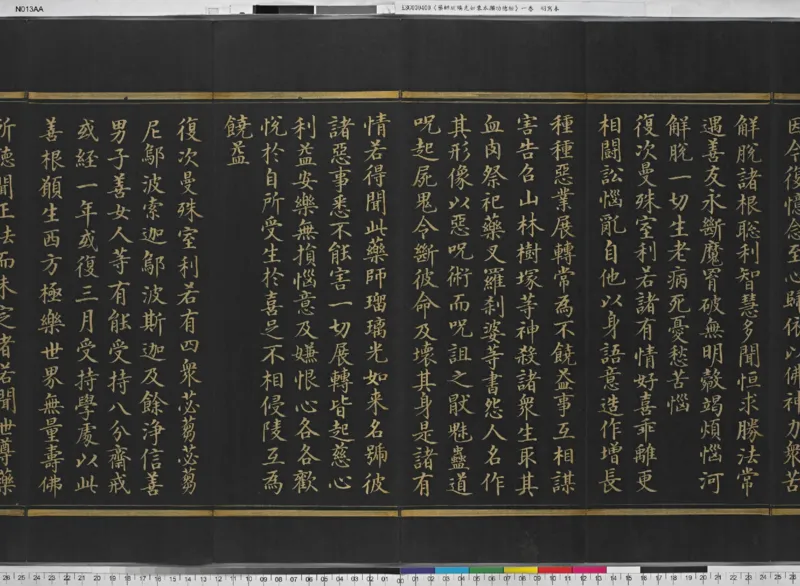 N013AA
因今復憶念至心歸依以佛神力眾苦
解脫諸根聡利智慧多聞恒求勝法常
遇善友永斷魔罥破無明㲉竭煩惱河
解脫一切生老病死憂愁苦惱
復次曼殊室利若諸有情好喜乖離更
相鬪訟惱亂自他以身語意造作增長
種種惡業展轉常為不饒益事互相謀
害告召山林樹塚等神殺諸眾生取其
血肉祭祀藥叉羅刹婆等書怨人名作
其形像以惡呪術而呪詛之厭魅蠱道
呪起屍鬼令斷彼命及壞其身是諸有
情若得聞此藥師瑠璃光如來名號彼
諸惡事悉不能害一切展轉皆起慈心
利益安樂無損惱意及嫌恨心各各歡
悅於自所受生於喜足不相侵陵互為
饒益
復次曼殊室利若有四眾苾蒭苾蒭
尼鄔波索迦鄔波斯迦及餘淨信善
男子善女人等有能受持八分齋戒
或経一年或復三月受持學處以此
善根願生西方極樂世界無量壽佛
所聽聞正法而未定者若聞世尊藥